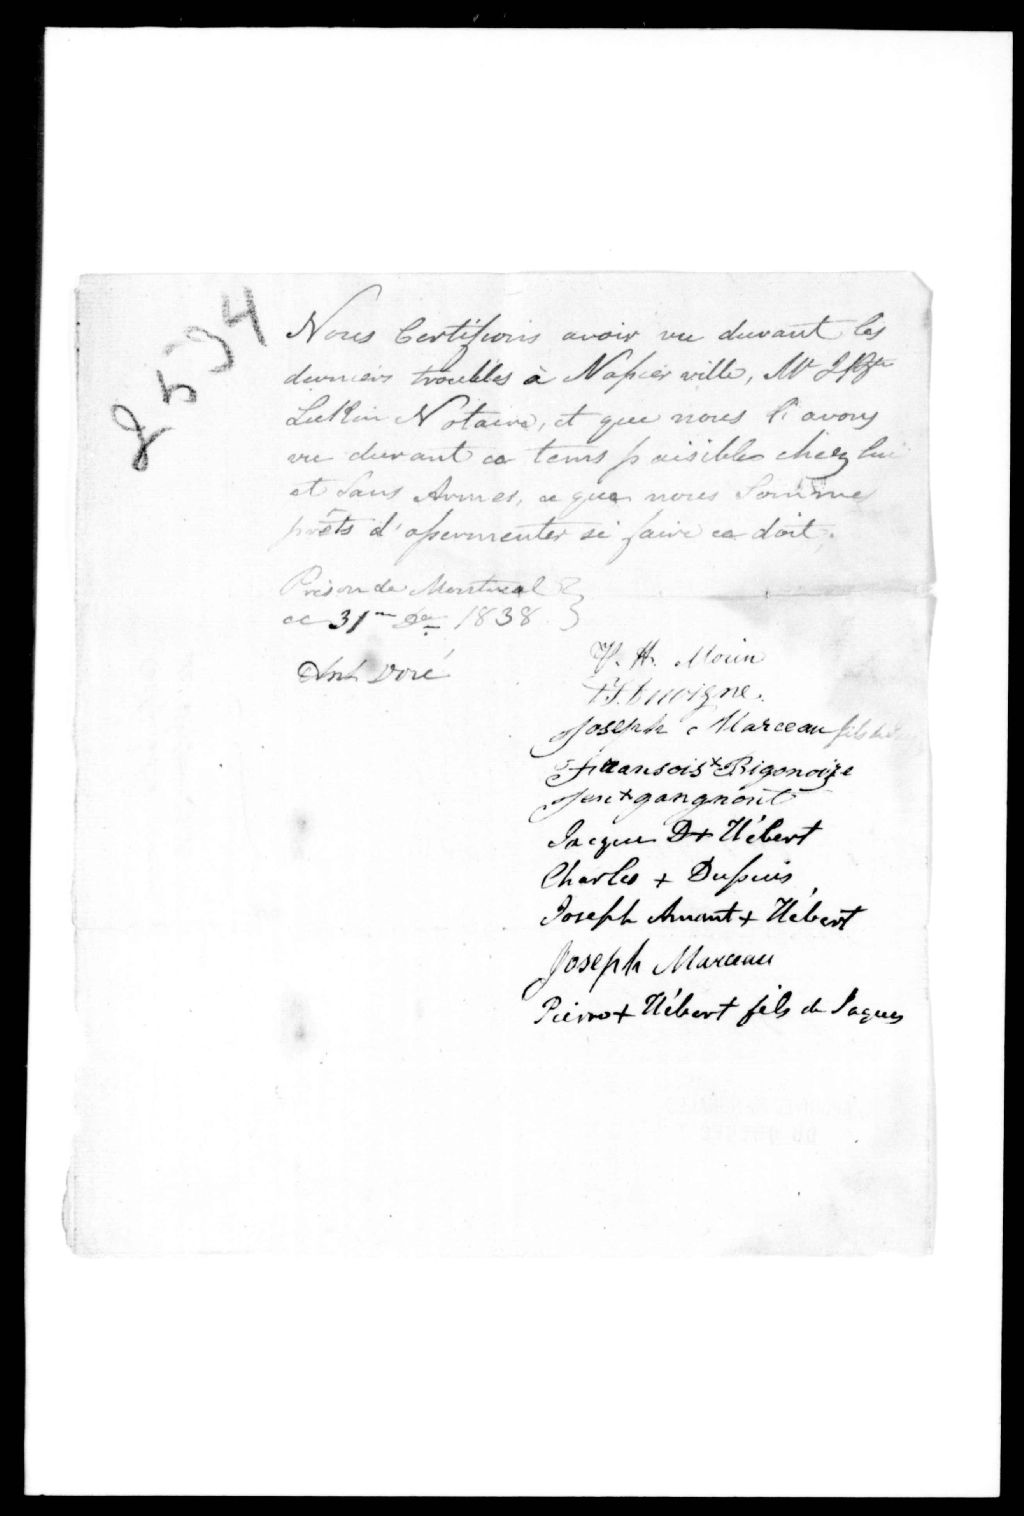 2534
Nous Certifions avoir vu durant les
derniers troubles à Napierville, Mr J Bte
Lukin Notaire, et que nous l'avons
vu durant ce tems paisible chez lui
et Sans Armes, ce que nous Somme
prêts d'assermenter si faire ce doit.
Prison de Montreal
ce 31me De 1838.
Ant Doré
P. H. Morin
Joseph Marceau fils de
fransois + Bigonoize
+ gangnont
Jacque D + Hébert
Charles + Dupuis
Joseph Amant + Hébert
Joseph Marceau
Pierre + Hébert fils de Jaques